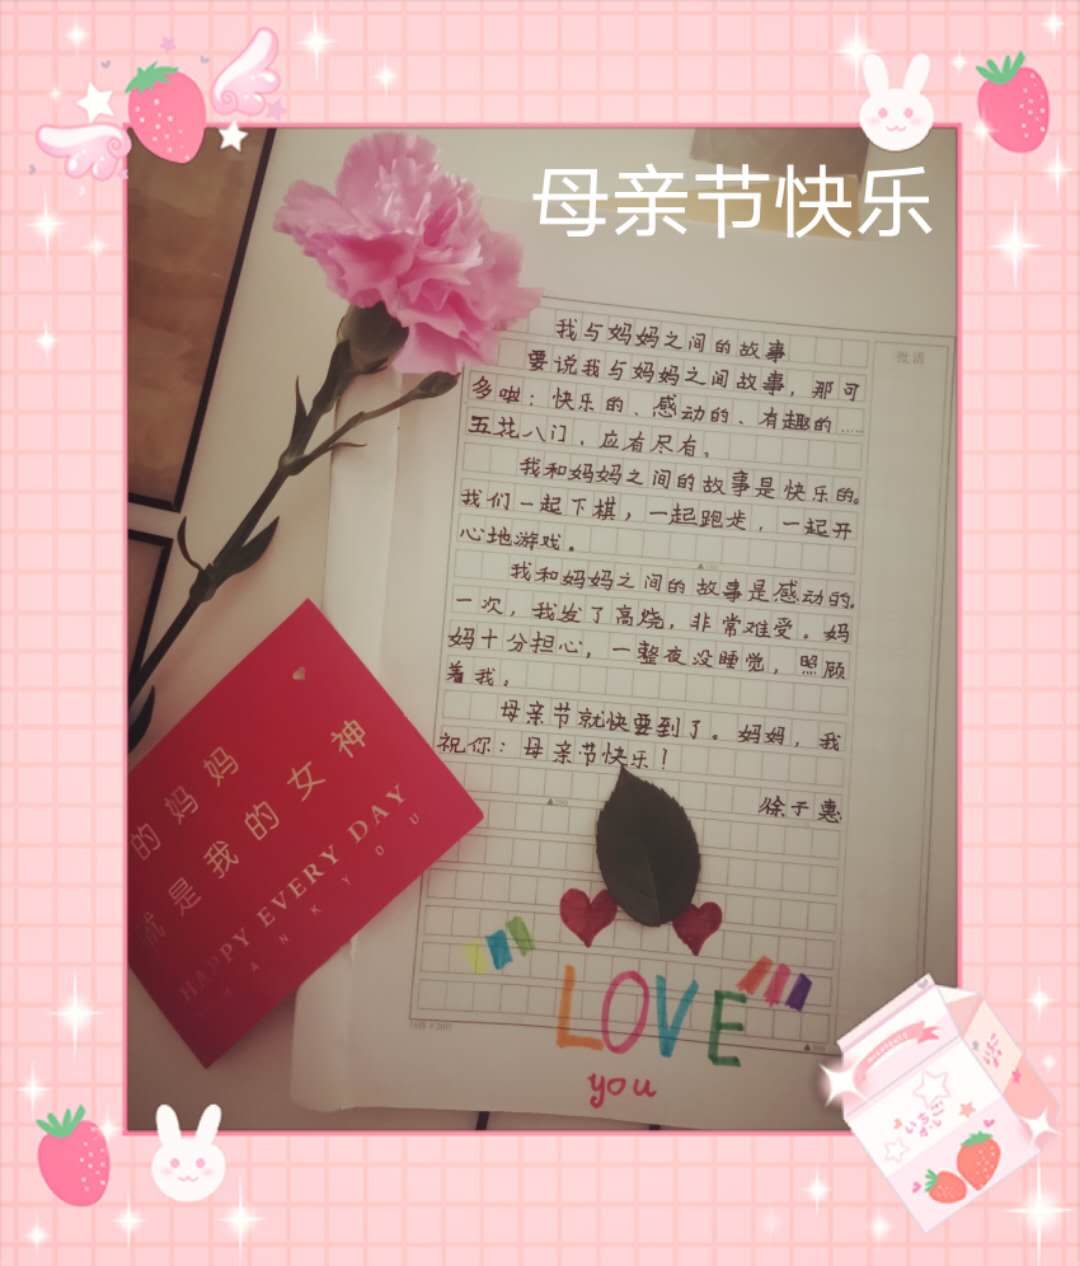 母亲节快乐
我与妈妈之间的故事
要说我与妈妈之间故事，那可
多啦：快乐的、感动的、有趣的……
五花八门，应有尽有。
我和妈妈之间的故事是快乐的。
我们一起下棋，一起跑步，一起开
心地游戏。
我和妈妈之间的故事是感动的。
一次，我发了高烧，非常难受。妈
妈十分担心，一整夜没睡觉，照顾
着我。
母亲节就快要到了。妈妈，我
祝你：母亲节快乐！
徐于惠
批语
的妈妈
就是我的女神
HAPPY EVERY DAY
ANK YOU
LOVE
you
いちご